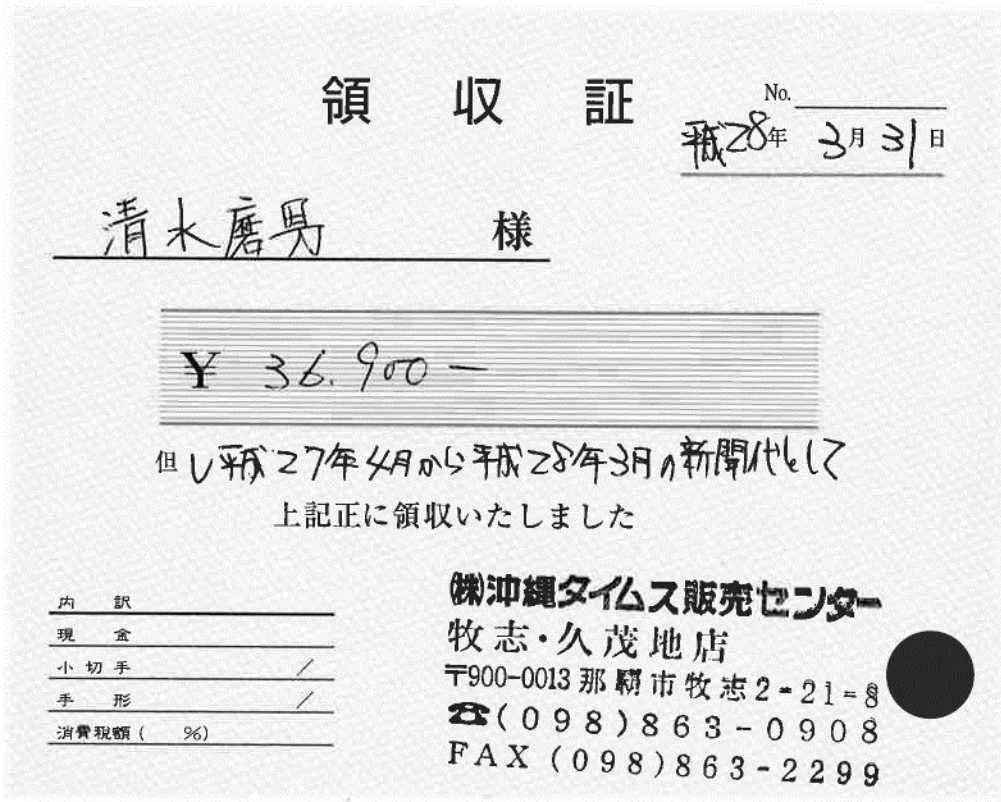 領収証
No.
平成28年 3月31日
清水磨男 様
¥ 36.900－
但し平成27年4月から平成28年3月の新聞代として
上記正に領収いたしました
内訳
現金
小切手 /
手形 /
消費税額( %)
㈱沖縄タイムス販売センター
牧志・久茂地店
〒900-0013 那覇市牧志2-21-8
☎(098)863-0908
FAX (098)863-2299